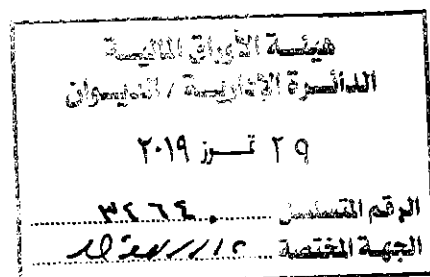 هيئة الأوراق المالية
الدائرة الإدارية / الديوان
٢٩ تموز ٢٠١٩
الرقم المتسلسل ٣٤٦٤
الجهة المختصة